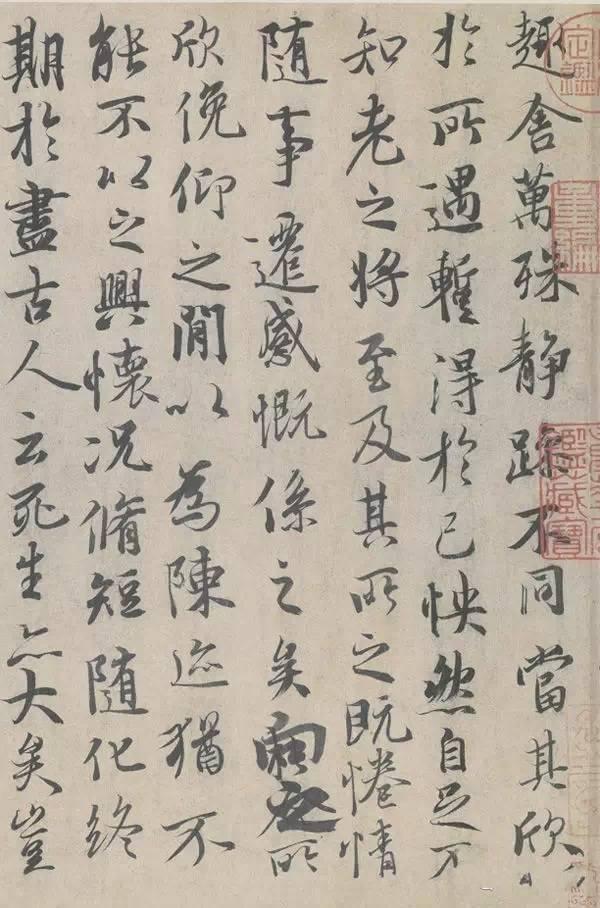 趣舍萬殊静躁不同當其欣
於所遇暫得於己怏然自足不
知老之將至及其所之既惓情
隨事遷感慨係之矣向之所
欣俛仰之閒以為陳迹猶不
能不以之興懷況脩短隨化終
期於盡古人云死生亦大矣豈